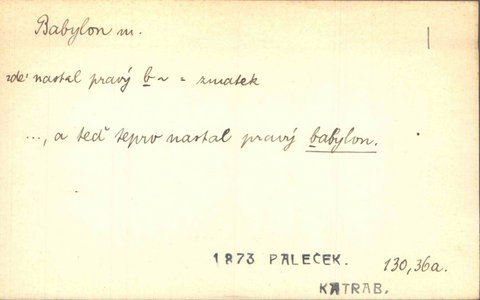 Babylon m.
zde: nastal pravý b~ = zmatek
..., a teď teprv nastal pravý babylon.
1873 PALEČEK. 130,36a.
KATRAB.